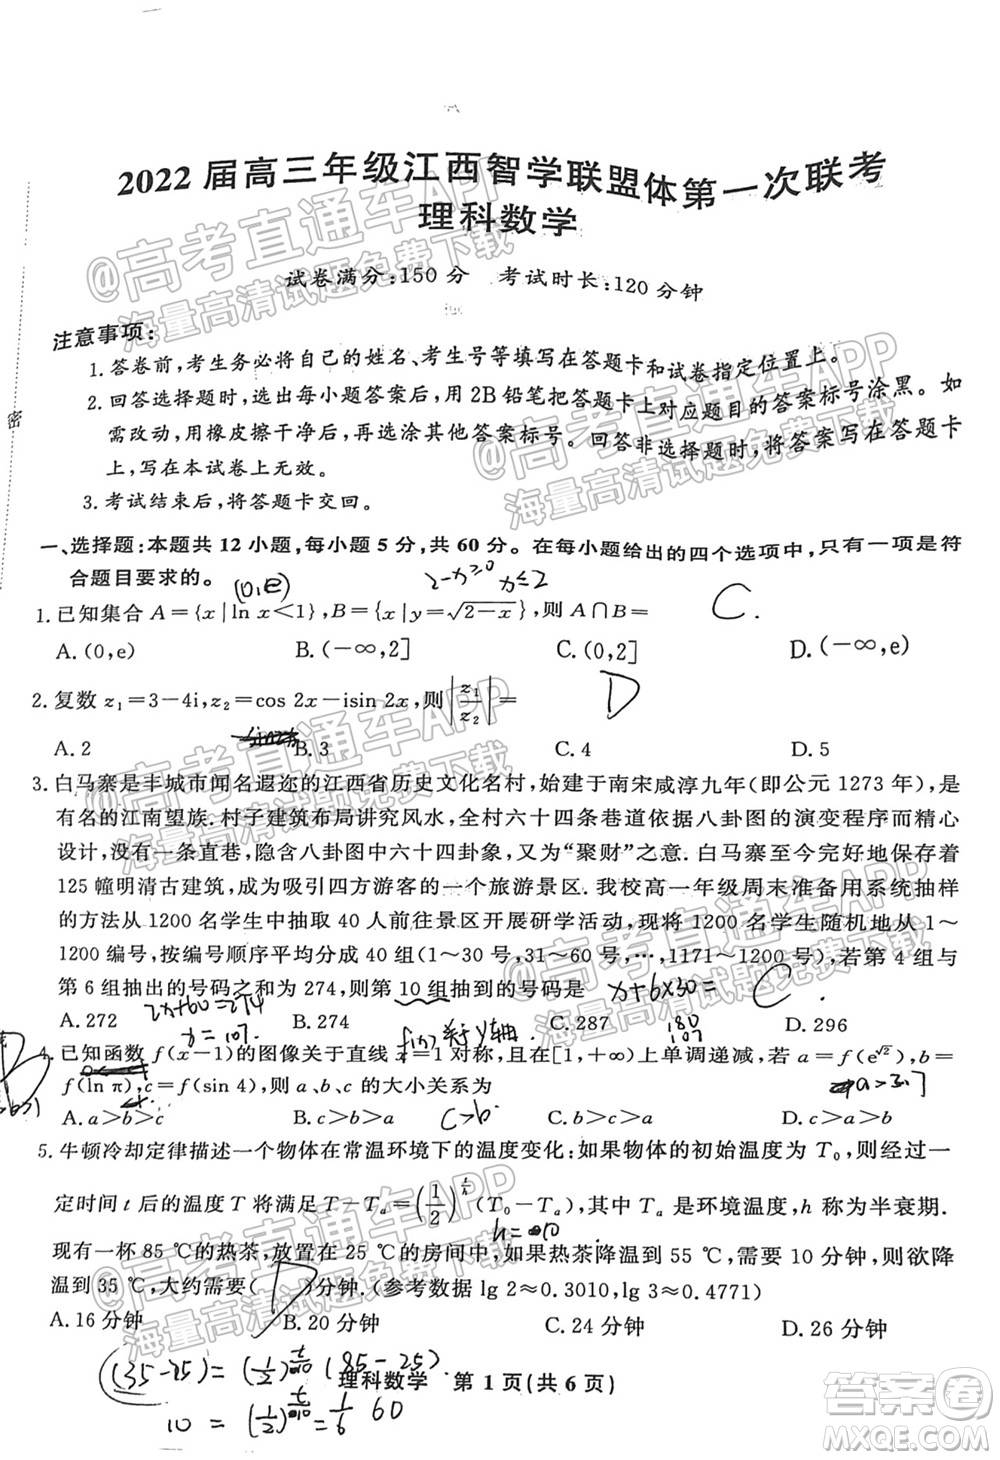 2022届高三年级江西智学联盟体第一次联考
理科数学
试卷满分:150分 考试时长:120分钟
注意事项:
1. 答卷前,考生务必将自己的姓名、考生号等填写在答题卡和试卷指定位置上。
2. 回答选择题时,选出每小题答案后,用 2B 铅笔把答题卡上对应题目的答案标号涂黑。如
需改动,用橡皮擦干净后,再选涂其他答案标号。回答非选择题时,将答案写在答题卡
上,写在本试卷上无效。
3. 考试结束后,将答题卡交回。
密
一、选择题:本题共 12 小题,每小题 5 分,共 60 分。在每小题给出的四个选项中,只有一项是符
合题目要求的。
(0,e) 2-x≥0 x≤2
1. 已知集合 A={x|ln x<1},B={x|y=√(2-x)},则 A∩B= C.
A. (0,e) B. (-∞,2] C. (0,2] D. (-∞,e)
2. 复数 z₁=3-4i,z₂=cos 2x-isin 2x,则|z₁/z₂|= D
A. 2 B. 3 C. 4 D. 5
3. 白马寨是丰城市闻名遐迩的江西省历史文化名村,始建于南宋咸淳九年(即公元 1273 年),是
有名的江南望族. 村子建筑布局讲究风水,全村六十四条巷道依据八卦图的演变程序而精心
设计,没有一条直巷,隐含八卦图中六十四卦象,又为“聚财”之意. 白马寨至今完好遗存着
125 幢明清古建筑,成为吸引四方游客的一个旅游景区. 我校高一年级周末准备用系统抽样
的方法从 1200 名学生中抽取 40 人前往景区开展研学活动,现将 1200 名学生随机地从 1~
1200 编号,按编号顺序平均分成 40 组(1~30 号,31~60 号,…,1171~1200 号),若第 4 组与
第 6 组抽出的号码之和为 274,则第 10 组抽到的号码是 x+6×30= C.
2x+60=274
A. 272 B. 274 C. 287 D. 296
x=107. 180
107
B
4. 已知函数 f(x-1)的图像关于直线 x=1 对称,且在[1,+∞)上单调递减,若 a=f(e^√2),b=
f(ln π),c=f(sin 4),则 a、b、c 的大小关系为
A. a>b>c B. c>b>a C. b>c>a D. c>a>b
c>b
5. 牛顿冷却定律描述一个物体在常温环境下的温度变化:如果物体的初始温度为 T₀,则经过一
定时间 t 后的温度 T 将满足 T-Tₐ=(1/2)^(t/h)(T₀-Tₐ),其中 Tₐ 是环境温度,h 称为半衰期.
现有一杯 85 ℃的热茶,放置在 25 ℃的房间中,如果热茶降温到 55 ℃,需要 10 分钟,则欲降
温到 35 ℃,大约需要( )分钟.(参考数据 lg 2≈0.3010,lg 3≈0.4771)
D
A. 16 分钟 B. 20 分钟 C. 24 分钟 D. 26 分钟
(35-25)=(1/2)^(t/10)(85-25)
理科数学 第 1 页(共 6 页)
@高考直通车APP
海量高清试题免费下载
@高考直通车APP
海量高清试题免费下载
@高考直通车APP
海量高清试题免费下载
@高考直通车APP
海量高清试题免费下载
@高考直通车APP
海量高清试题免费下载
答案卷
MXQE.COM